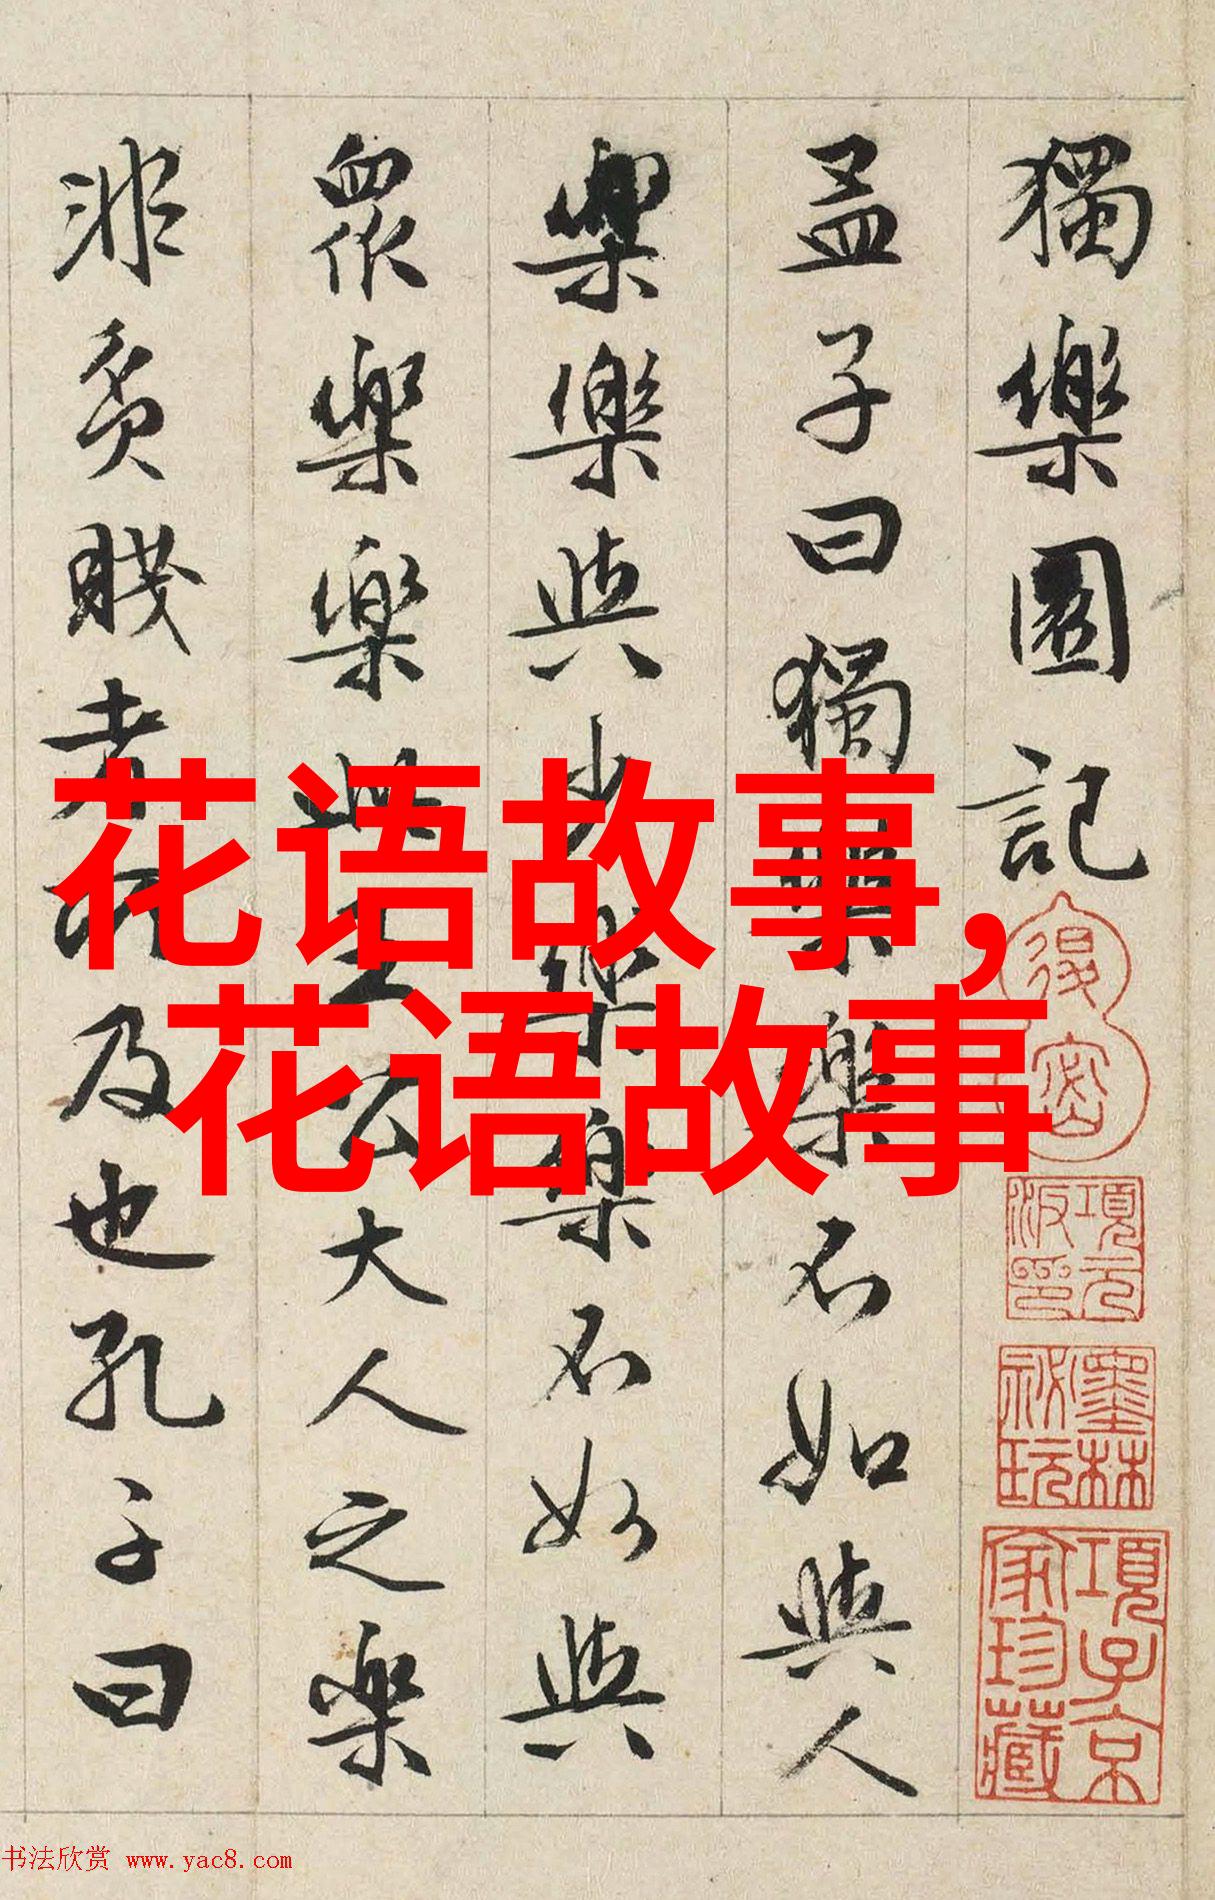 獨樂園記
孟子曰獨樂樂不如與人
樂樂與少樂樂不如與
眾樂樂此王公大人之樂
非貧賤者所及也孔子曰
花语故事,
花语故事
項元汴印
墨林秘玩
項子京家珍藏
书法欣赏 www.yac8.com